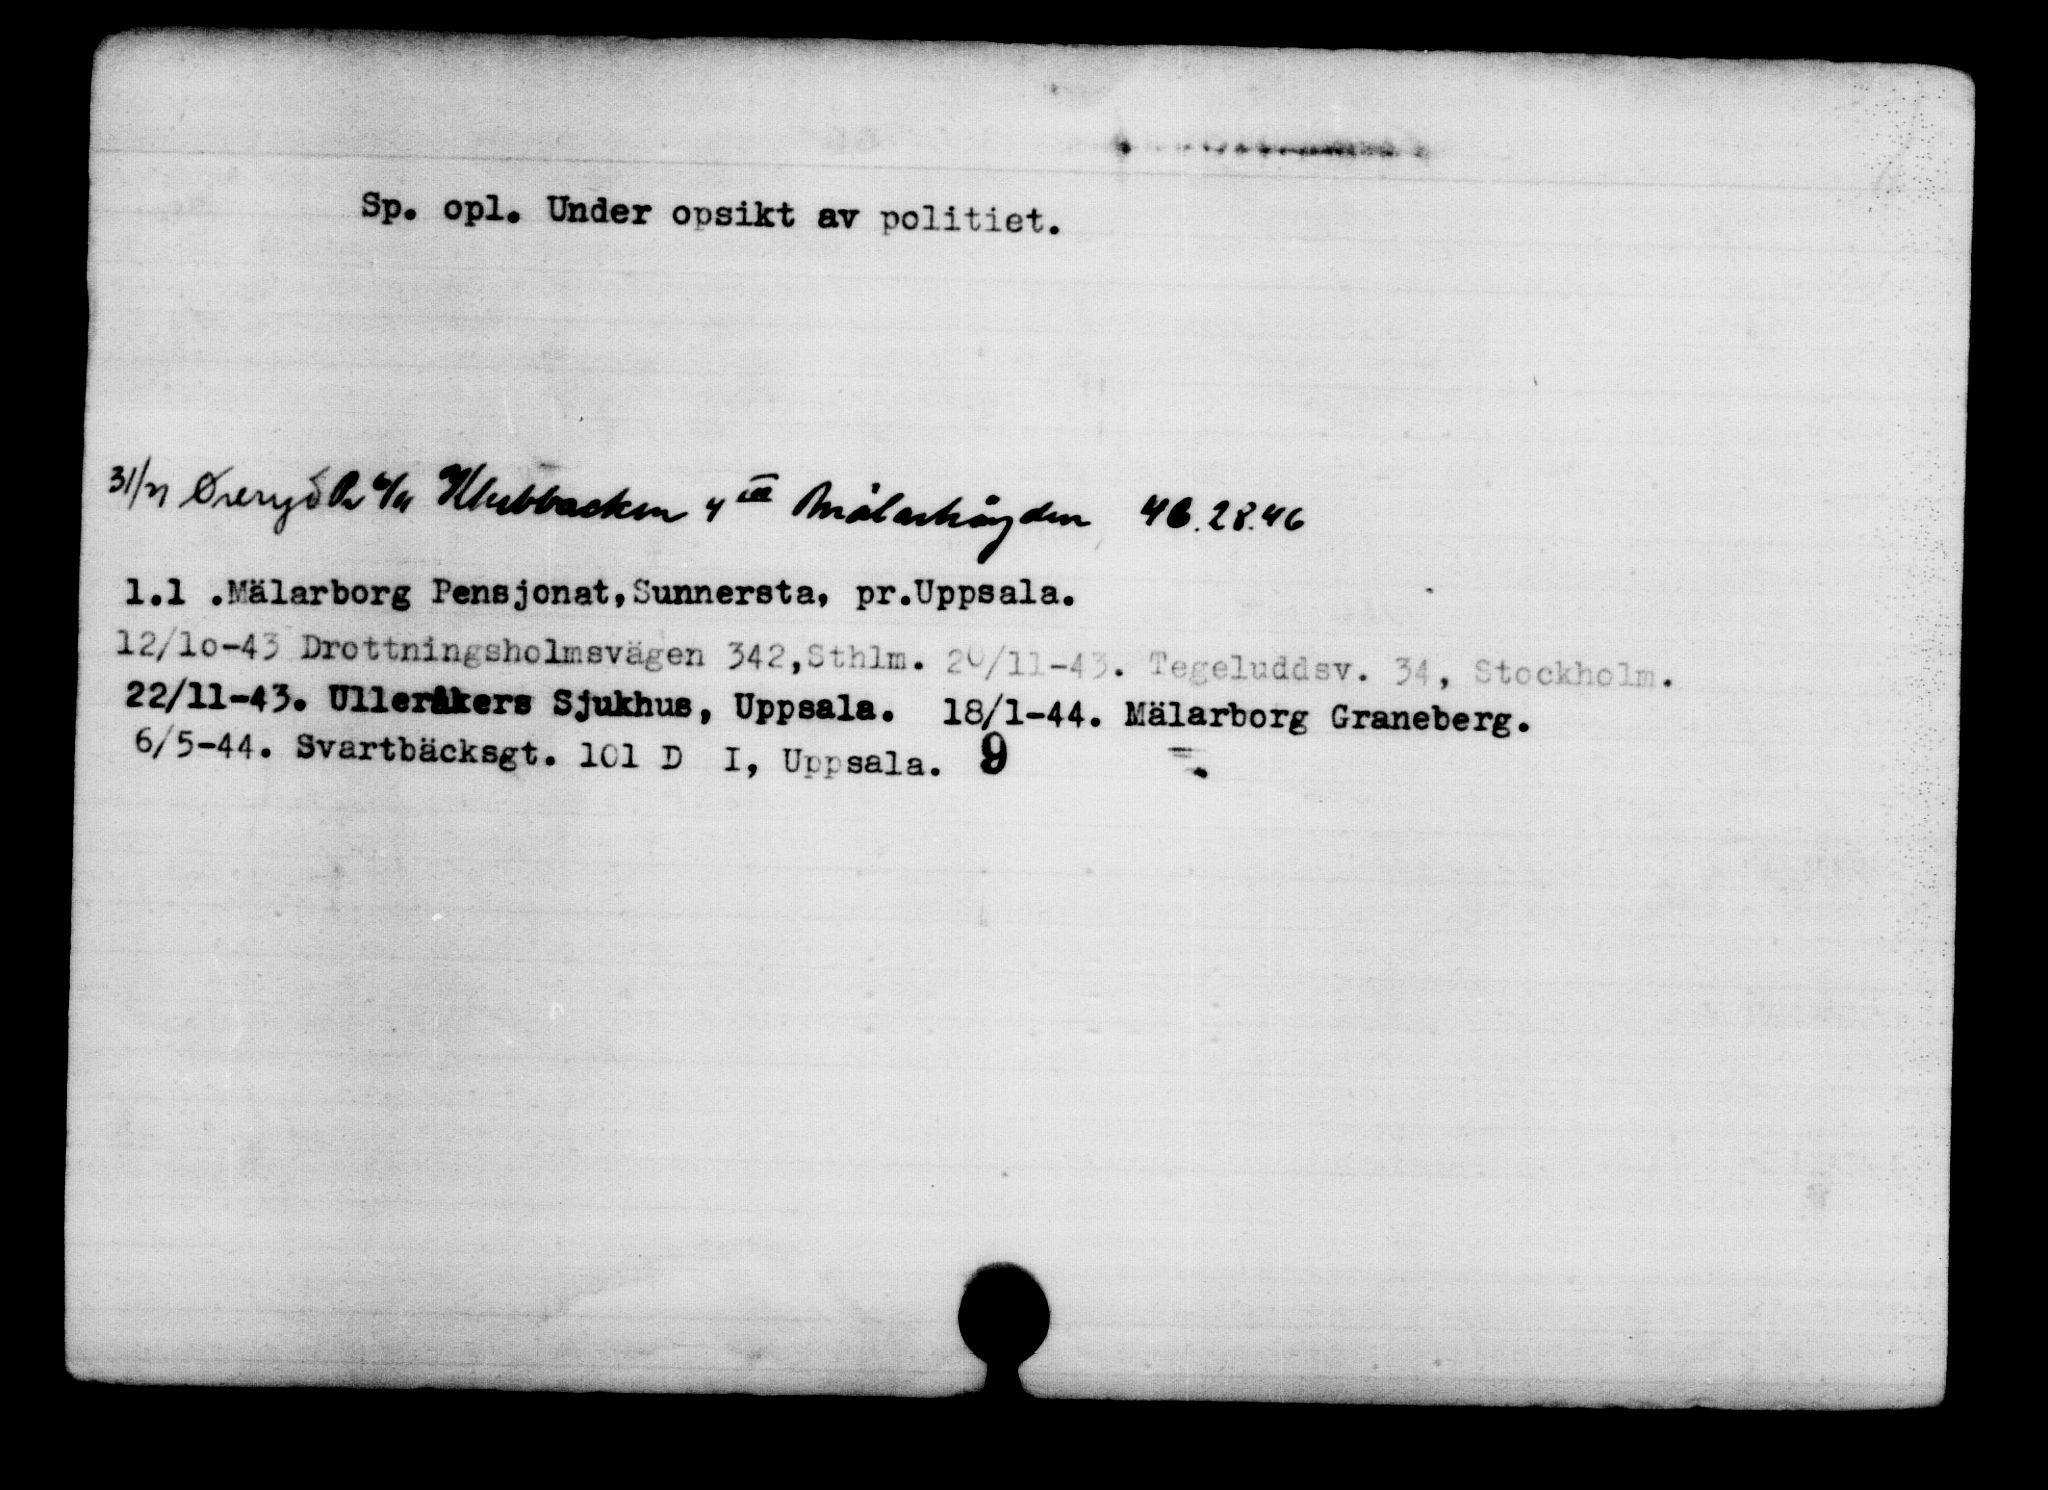 Sp. opl. Under opsikt av politiet.
31/ Øreryd 6/11 Klubbacken 4 III Mälarhöyden 46.28.46
1.1 .Mälarborg Pensjonat,Sunnersta, pr.Uppsala.
12/1o-43 Drottningsholmsvägen 342,Sthlm. 20/11-43. Tegeluddsv. 34, Stockholm.
22/11-43. Ulleråkers Sjukhus, Uppsala. 18/1-44. Mälarborg Graneberg.
6/5-44. Svartbäcksgt. 101 D I, Uppsala. 9